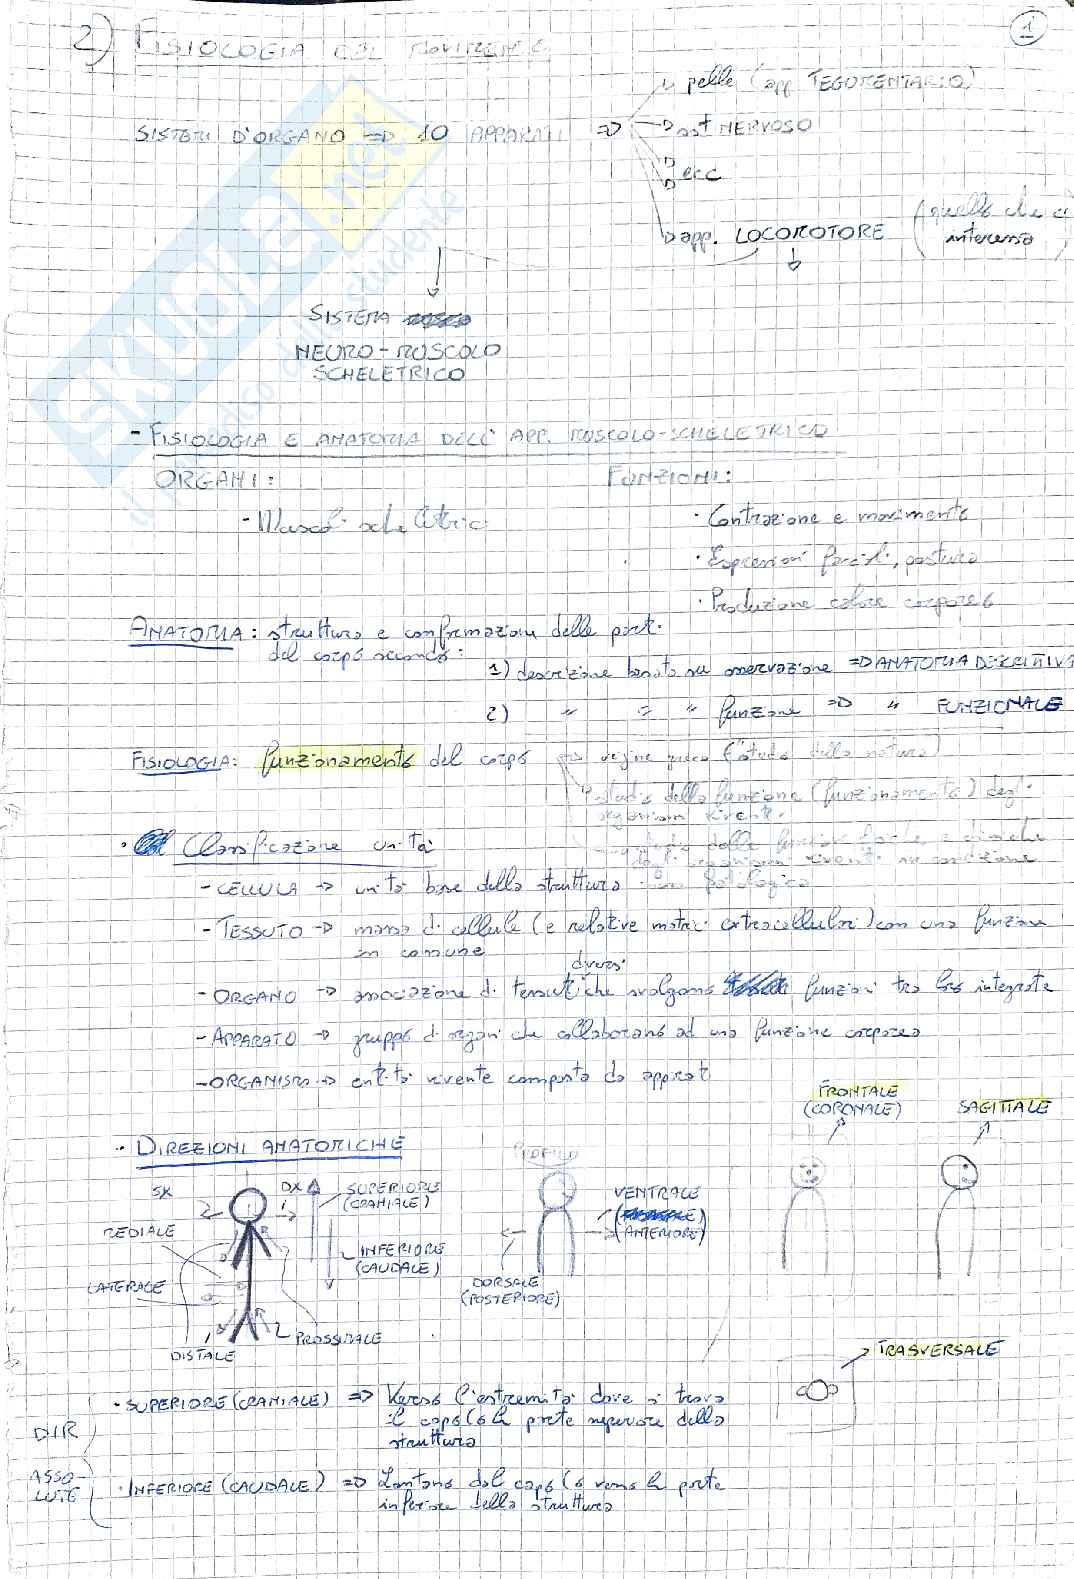 1
2) FISIOLOGIA DEL MOVIMENTO
SISTEMI D'ORGANO => 10 APPARATI =>
pelle (app TEGUMENTARIO)
sist NERVOSO
ecc
app. LOCOMOTORE (quello che ci interessa)
SISTEMA
NEURO-MUSCOLO
SCHELETRICO
SKUOLA.net
il paradiso dello studente
- FISIOLOGIA E ANATOMIA DELL'APP. MUSCOLO-SCHELETRICO
ORGANI: FUNZIONI:
· Muscoli scheletrici · Contrazione e movimento
· Espressioni facciali, postura
· Produzione calore corporeo
ANATOMIA: struttura e conformazione delle parti
del corpo secondo:
1) descrizione basata su osservazione => ANATOMIA DESCRITTIVA
2) " " " funzione => " FUNZIONALE
FISIOLOGIA: funzionamento del corpo -> origine greca (studio della natura)
studio della funzione (funzionamento) degli
organismi viventi
studio delle funzioni fisiche e chimiche
degli organismi viventi in condizione
non patologica
· Classificazione unità
- CELLULA -> unità base della struttura
- TESSUTO -> massa di cellule (e relative matrici extracellulari) con una funzione
in comune
- ORGANO -> associazione di diversi tessuti che svolgono funzioni tra loro integrate
- APPARATO -> gruppo di organi che collaborano ad una funzione corporea
- ORGANISMO -> entità vivente composta da apparati
· DIREZIONI ANATOMICHE
FRONTALE
(CORONALE)
SAGITTALE
PROFILO
SX DX
SUPERIORE
(CRANIALE)
INFERIORE
(CAUDALE)
MEDIALE
LATERALE
DISTALE
PROSSIMALE
VENTRALE
(ANTERIORE)
DORSALE
(POSTERIORE)
TRASVERSALE
DIR
ASSO-
LUTE
· SUPERIORE (CRANIALE) => Verso l'estremità dove si trova
il capo (o la parte superiore della
struttura
· INFERIORE (CAUDALE) => Lontano dal capo (o verso la parte
inferiore della struttura